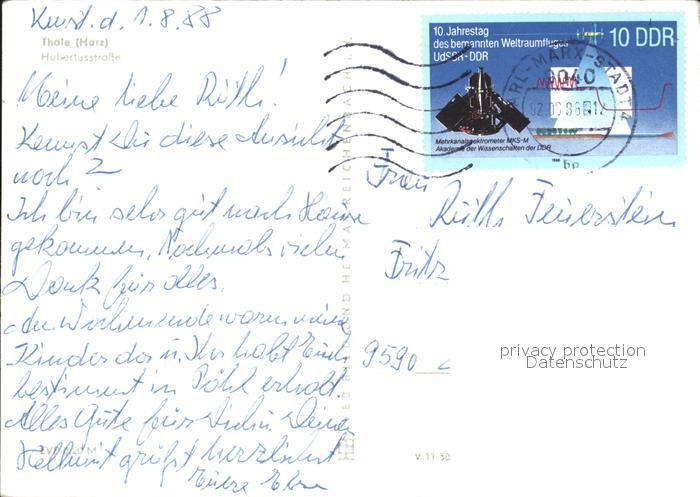 Kmst. d. 1.8.88
Thale (Harz)
Hubertusstraße
Meine liebe Ruth!
Kennst Du diese Ansicht
noch?
Ich bin sehr gut nach Hause
gekommen. Nochmals vielen
Dank für Alles.
Am Wochenende waren meine
Kinder da u. Ihr habt Euch
bestimmt in Pöhl erholt.
Alles Gute für Dich u. Deinen
Hellmut grüßt herzlichst
Eure
10. Jahrestag
des bemannten Weltraumfluges
UdSSR-DDR
10 DDR
KARL-MARX-STADT 4
9040
Mehrkanalspektrometer MKS-M
Akademie der Wissenschaften der DDR
1988
Frau
Ruth Feuerstein
9590
privacy protection
Datenschutz
V 11 50